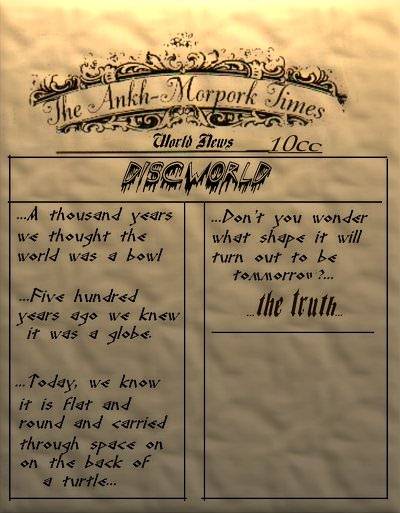 The Ankh-Morpork Times
World News 10cc
DISCWORLD
...A thousand years
we thought the
world was a bowl
...Five hundred
years ago we knew
it was a globe.
...Today, we know
it is flat and
round and carried
through space on
on the back of
a turtle...
...Don't you wonder
what shape it will
turn out to be
tommorrow?...
...the truth...